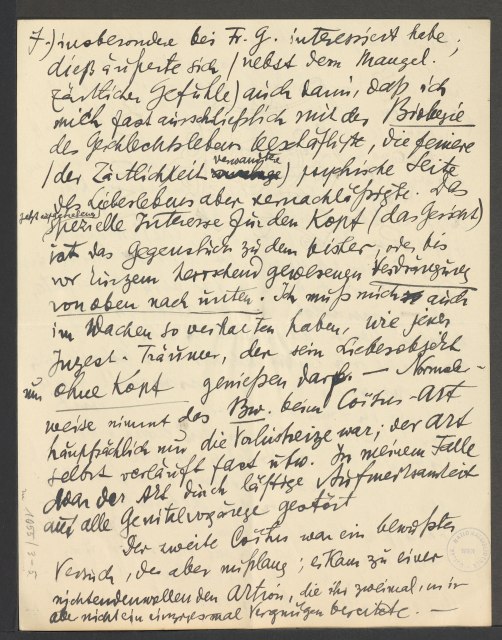 7.) insbesondere bei Fr. G. interessiert habe;
dieß äußerte sich (nebst dem Mangel
zärtlicher Gefühle) auch darin, daß ich
mich fast ausschließlich mit der Biologie
des Geschlechtslebens beschäftigte, die feinere
(der Zärtlichkeit verwandte) psychische Seite
des Liebeslebens aber vernachlässigte. Das
jetzt
spezielle Interesse für den Kopf (das Gesicht)
ist das Gegenstück zu dem bisher, oder bis
vor Kurzem herrschend gewesenen Verdrängung
von oben nach unten. Ich muß mich auch
im Wachen so verhalten haben, wie jener
Inzest-Träumer, der sein Liebesobjekt
nur ohne Kopf genießen darf. — Normaler-
weise nimmt das Bw. beim Coitus-Akt
hauptsächlich nur die Vorlustreize war; der Akt
selbst verläuft fast ubw. In meinem Falle
war der Akt durch lästige Aufmerksamkeit
auf alle Genitalvorgänge gestört
Der zweite Coitus war ein bewußter
Versuch, der aber mißlang; es kam zu einer
nichtendenwollenden Aktion, die ihr zweimal, mir
aber nicht ein einziges mal Vergnügen bereitete. —
1055/3-5